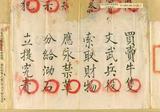 買賣牛隻
文武兵役
索取財物
應永禁革
分給油石
立提究者